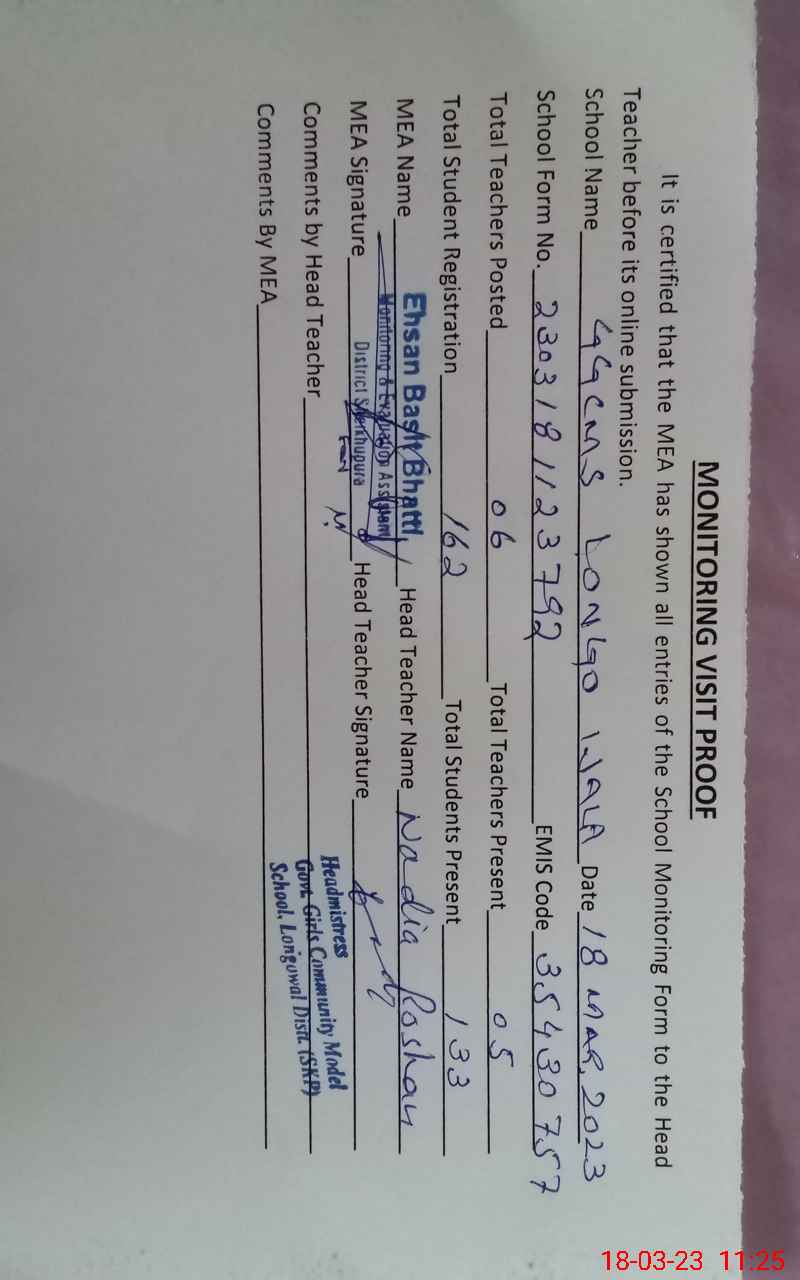 MONITORING VISIT PROOF
It is certified that the MEA has shown all entries of the School Monitoring Form to the Head
Teacher before its online submission.
School Name GGCMS LONGO WALA Date 18 MAR, 2023
School Form No. 2303181123792 EMIS Code 35430757
Total Teachers Posted 06 Total Teachers Present 05
Total Student Registration 162 Total Students Present 133
MEA Name Ehsan Basit Bhatti Head Teacher Name Nadia Roshan
Monitoring & Evaluation Assistant
District Sheikhupura
MEA Signature Head Teacher Signature
Headmistress
Comments by Head Teacher
Govt. Girls Community Model
School, Longowal Distt. (SKP)
Comments By MEA
18-03-23 11:25